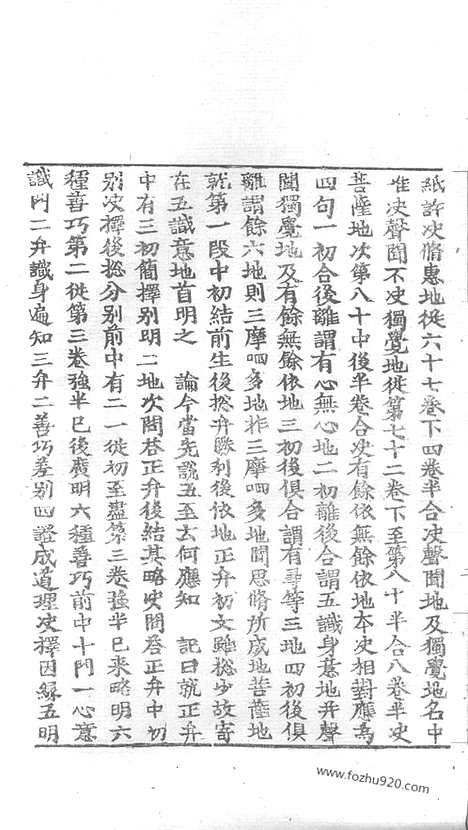 紙許决脩惠地從六十七卷下四卷半合决聲聞地及獨覺地名中
唯决聲聞不决獨覺地從第七十二卷下至第八十半合八卷半决
菩薩地次第八十中後半卷合决有餘依無餘依地本次相對應為
四句一初合後離謂有心無心地二初離後合謂五識身意地并聲
聞獨覺地及有餘無餘依地三初後俱合謂有尋等三地四初後俱
離謂餘六地則三摩呬多地非三摩呬多地聞思脩所成地菩薩地
就第一段中初結前生後揔弁勝利後依地正弁初文雖揔少故寄
在五識意地首明之　論今當先說五至云何應知　記曰就正弁
中有三初簡擇別明二地次問荅正弁後結其略决問荅正弁中初
別决擇後揔分別前中有二一從初至盡第三卷強半已來略明六
種善巧第二從第三卷強半已後廣明六種善巧前中十門一心意
識門二弁識身遍知三弁二善巧差別四證成道理决擇因緣五明
www.fozhu920.com